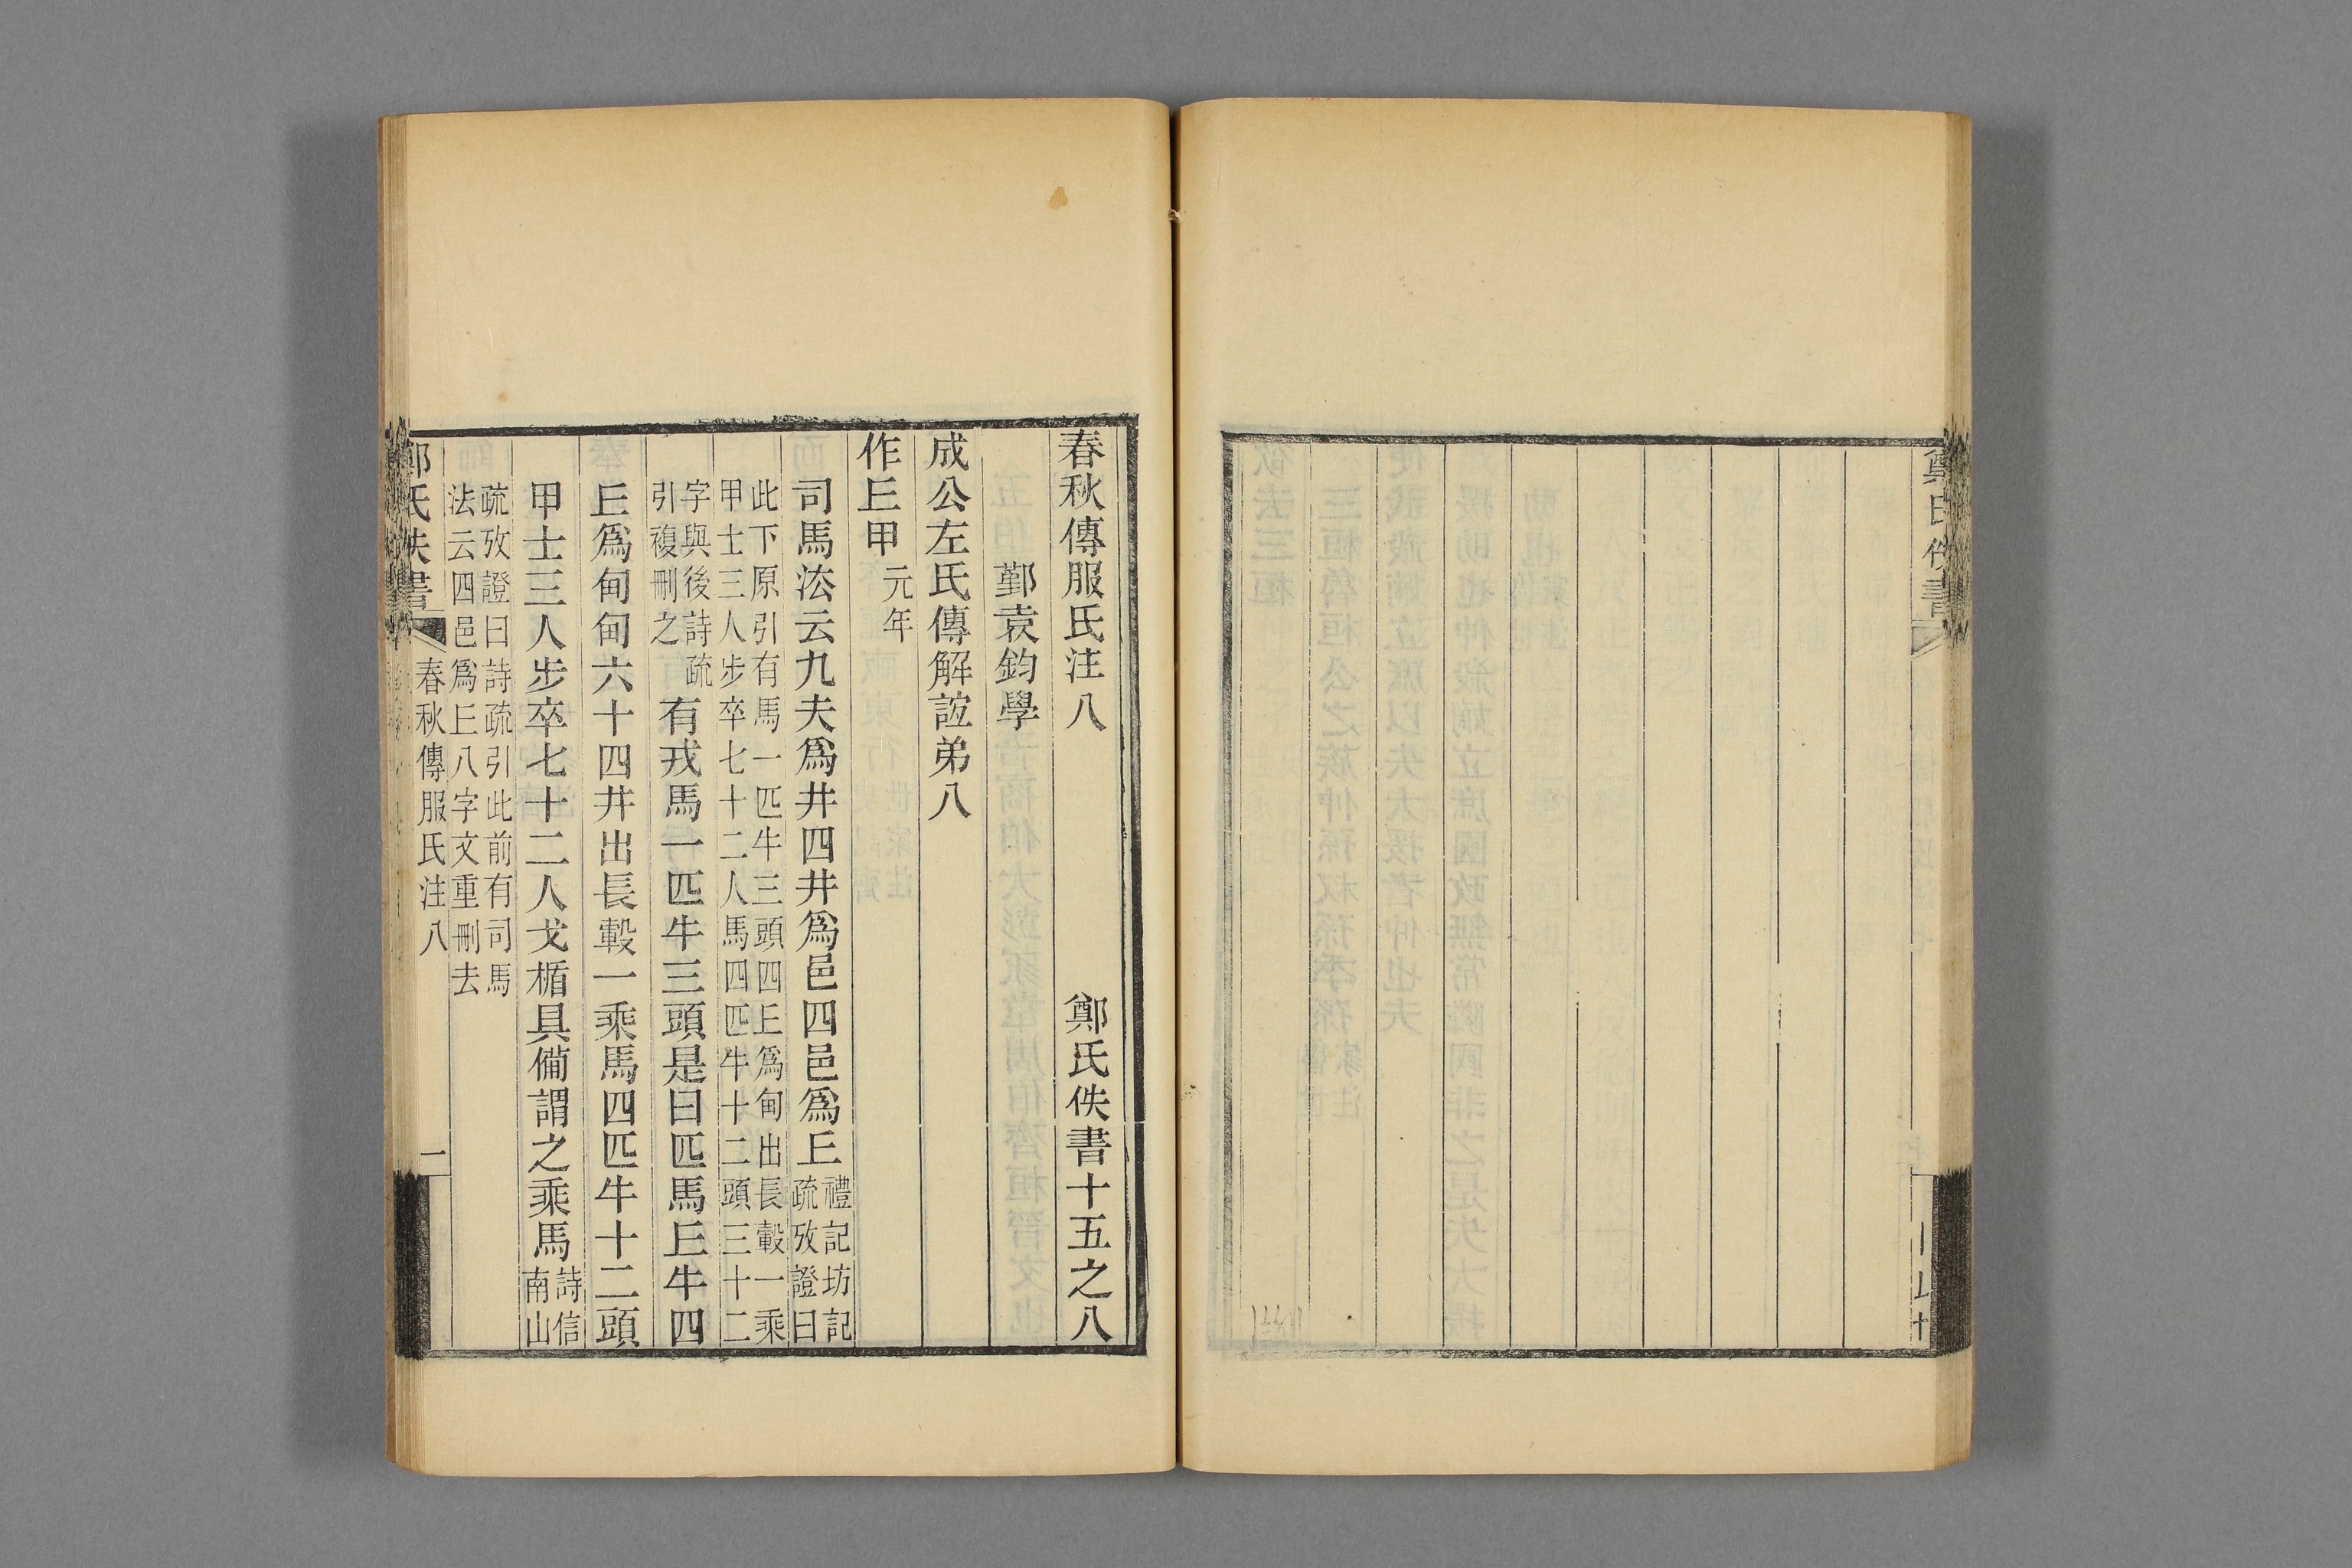 鄭氏佚書
春秋傳服氏注八　鄭氏佚書十五之八
鄞袁鈞學
成公左氏傳解誼弟八
作𠀉甲元年
司馬法云九夫爲井四井爲邑四邑爲𠀉禮記坊記
疏攷證曰
此下原引有馬一匹牛三頭四𠀉爲甸出長轂一乘
甲士三人步卒七十二人馬四匹牛十二頭三十二
字與後詩疏
引複刪之
有戎馬一匹牛三頭是曰匹馬𠀉牛四
𠀉爲甸甸六十四井出長轂一乘馬四匹牛十二頭
甲士三人步卒七十二人戈楯具備謂之乘馬詩信
南山
疏攷證曰詩疏引此前有司馬
法云四邑爲𠀉八字文重刪去
鄭氏佚書　春秋傳服氏注八　一